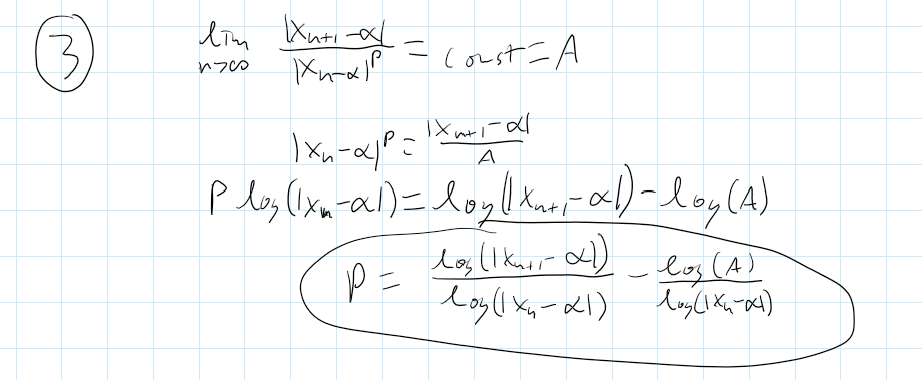 3 lim n→∞ |x_{n+1} - α| / |x_n - α|^p = const = A
|x_n - α|^p = |x_{n+1} - α| / A
P log(|x_n - α|) = log(|x_{n+1} - α|) - log(A)
P = log(|x_{n+1} - α|) / log(|x_n - α|) - log(A) / log(|x_n - α|)